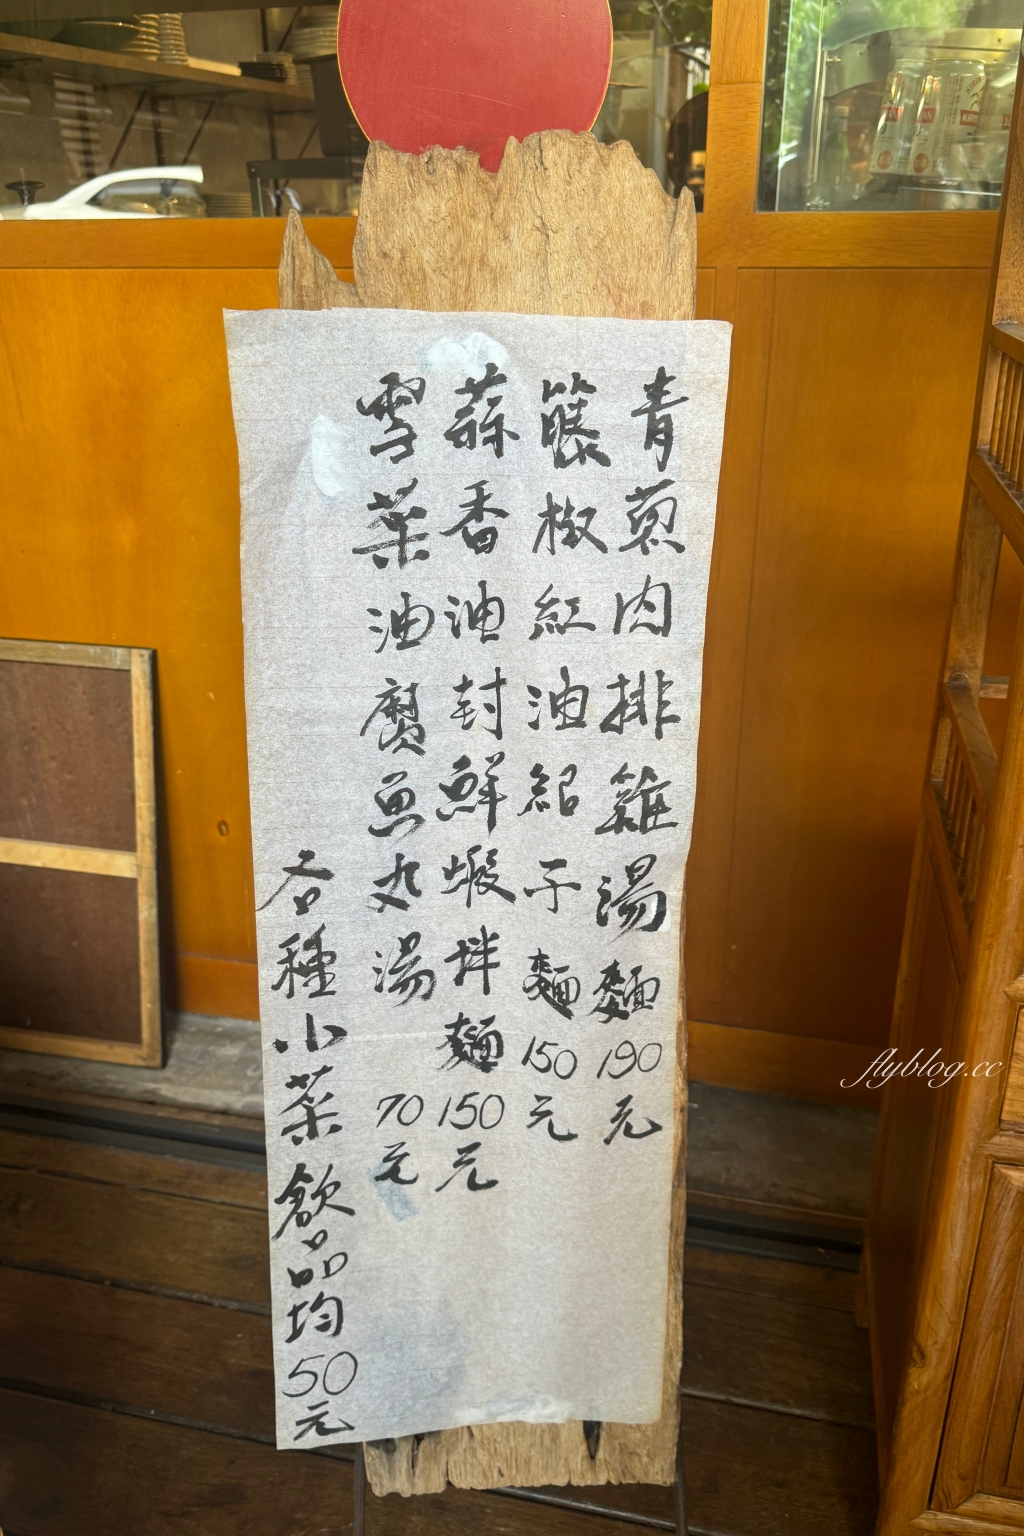 青蔥肉排雞湯麵190元
籐椒紅油紹子麵150元
蒜香油封鮮蝦拌麵150元
雪菜油魚丸湯 70元
各種小菜飲品均50元
flyblog.cc